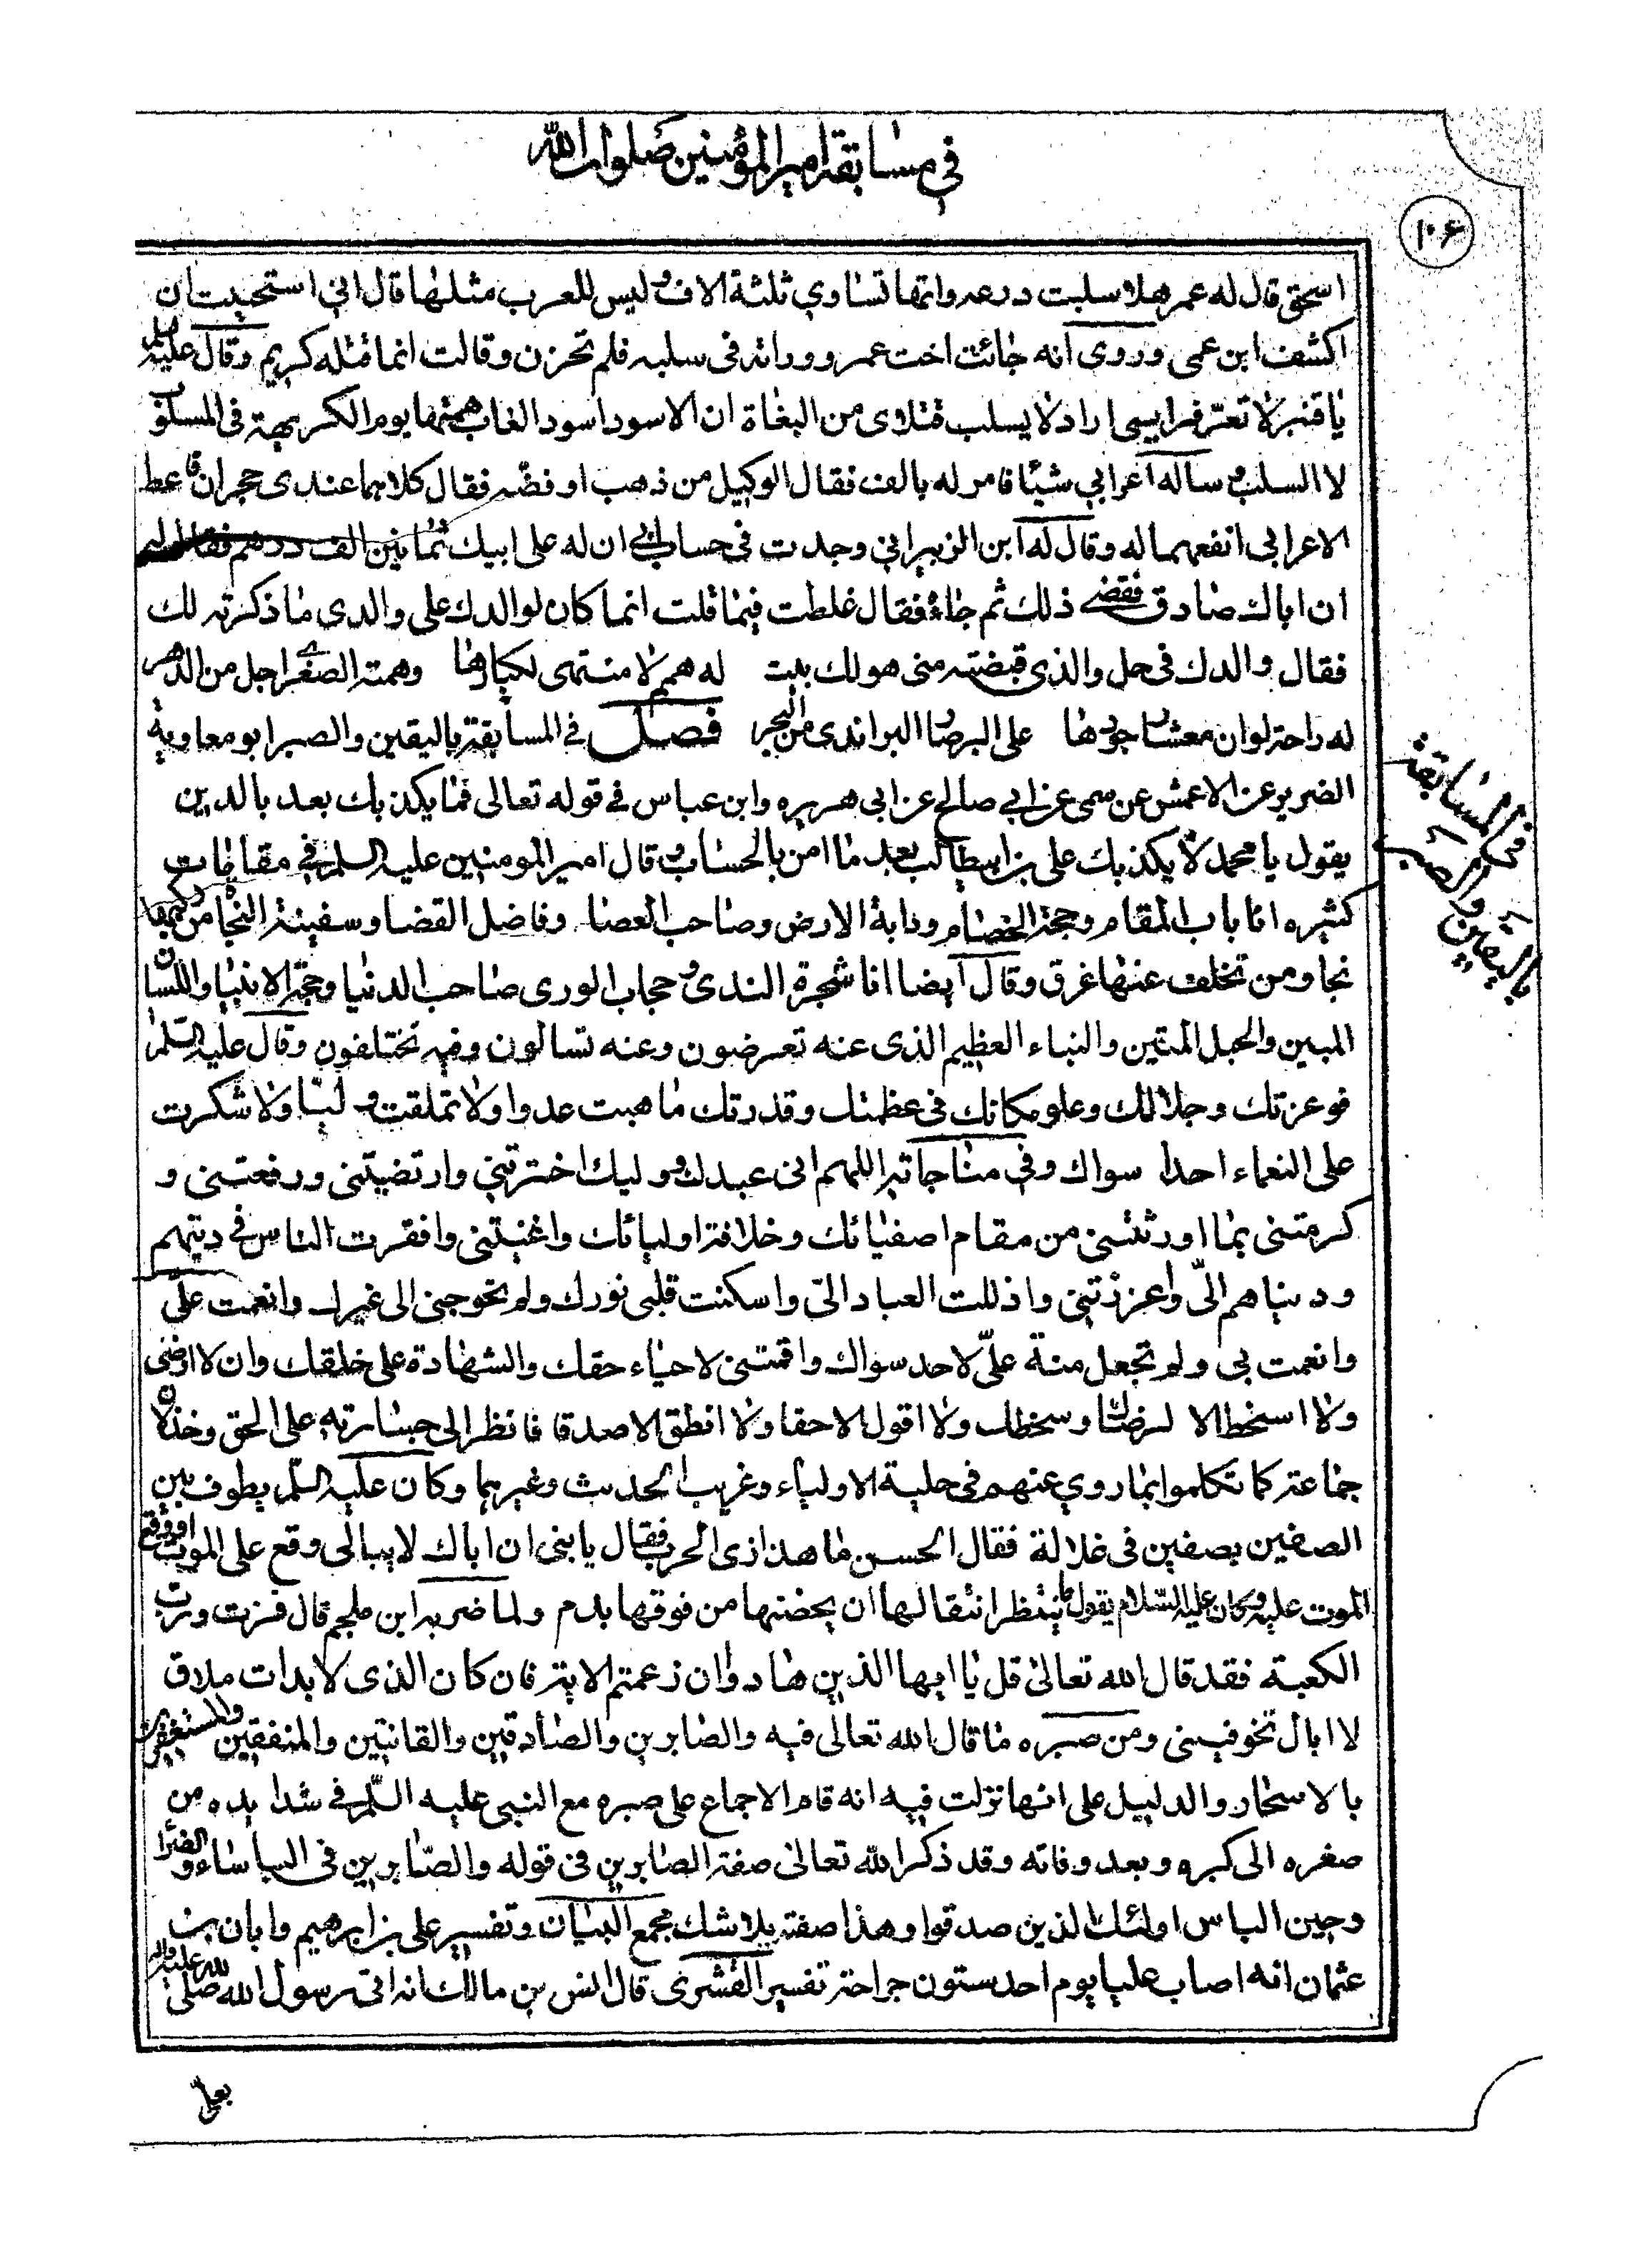 في مسابقة امير المؤمنين صلوات الله
۱۰۶
اسحق قال له عمر هلا سلبت درعه وانها تساوي ثلثة الاف وليس للعرب مثلها قال اني استحييت ان
اكشف ابن عمى وروى انه جائت اخت عمرو ورأته في سلبه فلم تحزن وقالت انما قتله كريم وقال عليه السلم
يا قنبر لا تعتر فرايسى اراد لا يسلب قتلاى من البغاة ان الاسود اسود الغاب همتها يوم الكريهة في المسلوب
لا السلب وساله اعرابي شيئا فامر له بالف فقال الوكيل من ذهب او فضه فقال كلاهما عندى حجران فاعط
الاعرابي انفعهما له وقال له ابن الزبير اني وجدت في حساب ابي ان له على ابيك ثمانين الف درهم فقال له
ان اباك صادق فقضى ذلك ثم جاءه فقال غلطت فيما قلت انما كان لوالدك على والدى ما ذكرته لك
فقال والدك في حل والذى قبضته منى هو لك بيت له همم لا منتهى لكبارها وهمته الصغرى اجل من الدهر
له راحة لو ان معشار جودها على البر صار البر اندى من البحر فصل في المسابقة باليقين والصبر ابو معاوية
الضرير عن الاعمش عن سمى عن ابي صالح عن ابي هريره وابن عباس في قوله تعالى فما يكذبك بعد بالدين
يقول يا محمد لا يكذبك على بن ابيطالب بعد ما امن بالحساب وقال امير المومنين عليه السلم في مقامات
كثيره انا باب المقام وحجة الخصام ودابة الارض وصاحب العصا وفاضل القضا وسفينة النجاه من ركبها
نجا ومن تخلف عنها غرق وقال ايضا انا شجرة الندى وحجاب الورى صاحب الدنيا وحجة الانبيا واللسان
المبين والحبل المتين والنباء العظيم الذى عنه تعرضون وعنه تسالون وفيه تختلفون وقال عليه السلم
فوعزتك وجلالك وعلو مكانك في عظمتك وقدرتك ما هبت عدوا ولا تملقت وليا ولا شكرت
على النعماء احدا سواك وفي مناجاته اللهم انى عبدك ووليك اخترتني وارتضيتني ورفعتني و
كرمتنى بما اورثتنى من مقام اصفيائك وخلافة اوليائك واغنيتني وافقرت الناس في دينهم
ودنياهم الىّ واعززتني واذللت العباد الىّ واسكنت قلبى نورك ولم تحوجني الى غيرك وانعمت علىّ
وانعمت بى ولم تجعل منة علىّ لاحد سواك واقمتنى لاحياء حقك والشهادة على خلقك وان لا ارضى
ولا اسخط الا لرضاك وسخطك ولا اقول الا حقا ولا انطق الا صدقا فانظر الى جسارته على الحق وخذلان
جماعة كما تكلموا بما روي عنهم في حلية الاولياء وغريب الحديث وغيرهما وكان عليه السلم يطوف بين
الصفين بصفين في غلالة فقال الحسن ما هذا زى الحرب فقال يا بنى ان اباك لا يبالى وقع على الموت او وقع
الموت عليه وكان عليه السلام يقول ما ينتظر اشقاها ان يخضبها من فوقها بدم ولما ضربه ابن ملجم قال فزت ورب
الكعبة فقد قال الله تعالى قل يا ايها الذين هادوا ان زعمتم الاية فان كان الذى لا بد ات ملاق
لا ابال تخوفيني ومن صبره ما قال الله تعالى فيه والصابرين والصادقين والقانتين والمنفقين والمستغفرين
بالاسحار والدليل على انها نزلت فيه انه قام الاجماع على صبره مع النبى عليه السلم في شدايده من
صغره الى كبره وبعد وفاته وقد ذكر الله تعالى صفة الصابرين في قوله والصابرين فى الباساء والضراء
وحين الباس اولئك الذين صدقوا وهذا صفته بلا شك مجمع البيان وتفسير على بن ابرهيم وابان بن
عثمان انه اصاب عليا يوم احد ستون جراحة تفسير القشرى قال انس بن مالك انه اتى رسول الله صلى الله عليه واله
في المسابقة
باليقين والصبر
بعلي